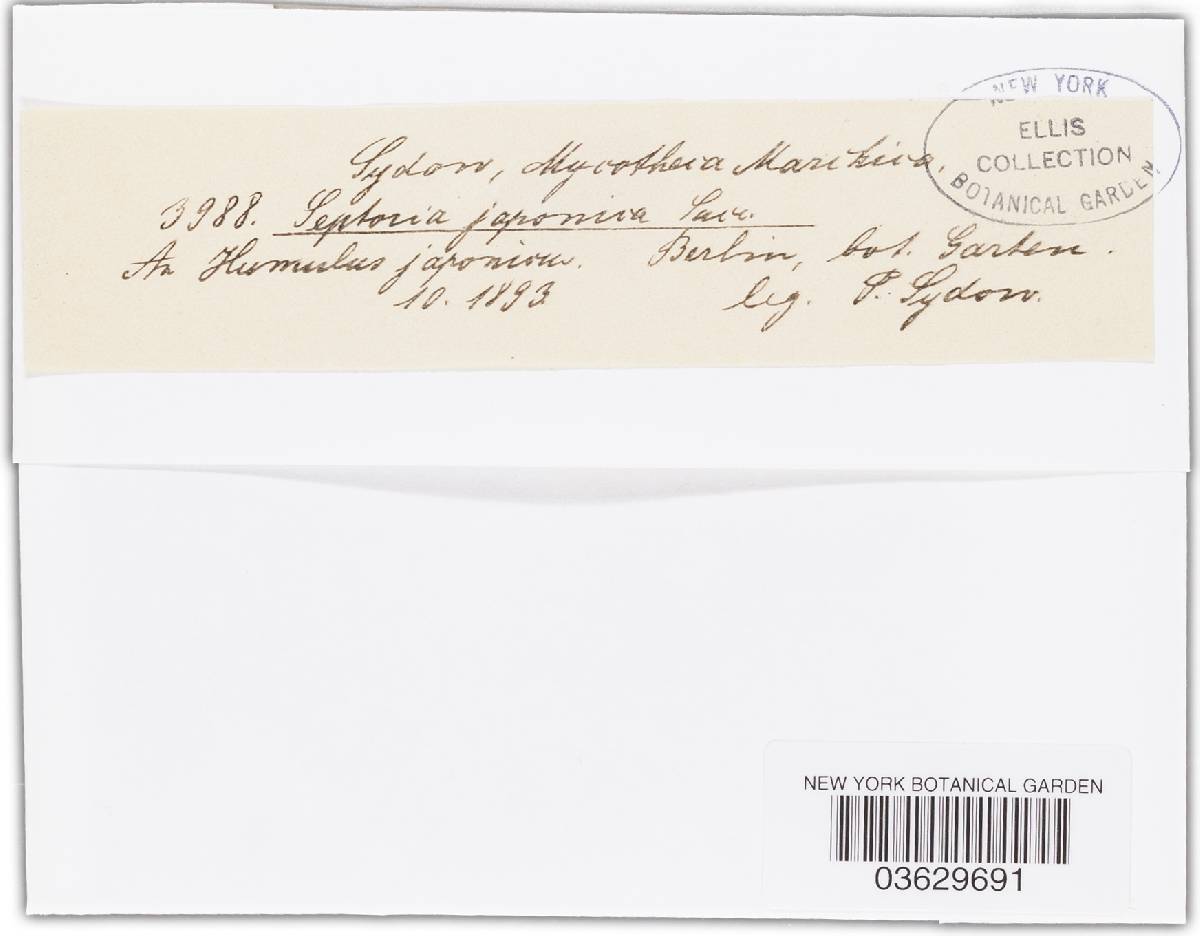 Sydow, Mycotheca Marchica.
3988. Septoria japonica Sacc.
An Humulus japonicus. Berlin, bot. Garten.
10. 1893 leg. P. Sydow.
NEW YORK
ELLIS
COLLECTION
BOTANICAL GARDEN
NEW YORK BOTANICAL GARDEN
03629691